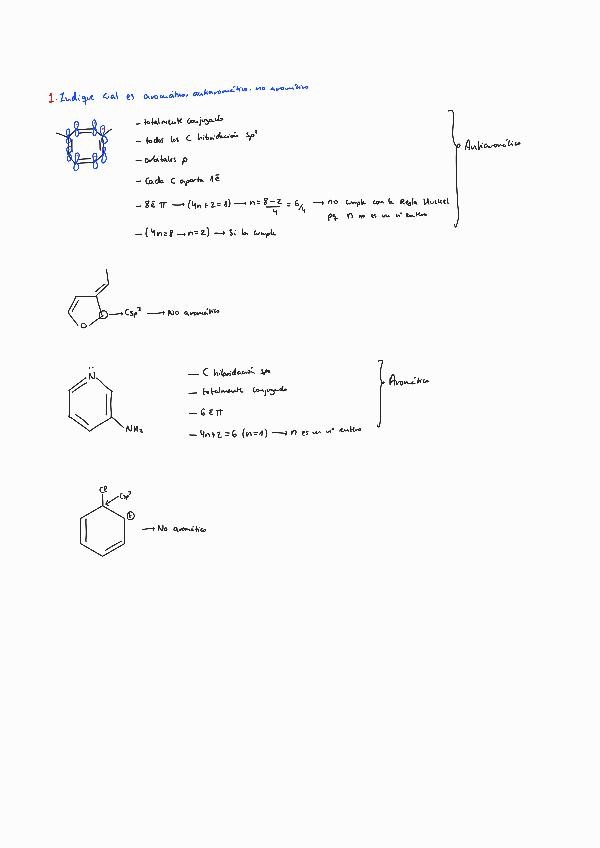 1. Indique cual es aromático, antiaromático, no aromático
- totalmente conjugado
- todos los C hibridación sp²
- orbitales p
- Cada C aporta 1ē
- 8ē π → (4n+2=1) → n = 8-2/4 = 6/4 → no cumple con la Regla Huckel
pq n no es un nº entero
- (4n=8 → n=2) → Si la cumple
Antiaromático
O
→ Csp³ → No aromático
N
NH₂
- C hibridación sp²
- totalmente conjugado
- 6ē π
- 4n+2=6 (n=1) → n es un nº entero
Aromático
Cl
Csp³
+
→ No aromático